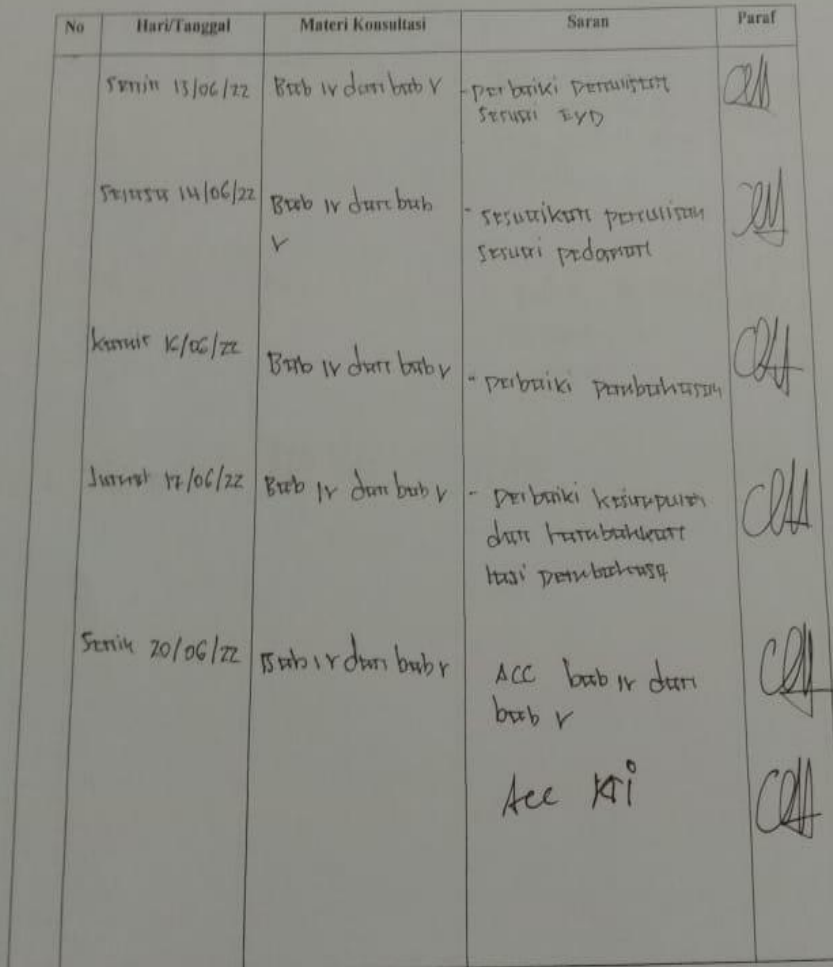 No Hari/Tanggal Materi Konsultasi Saran Paraf
Senin 13/06/22 Bab IV dan bab V - perbaiki penulisan
sesuai EYD
Selasa 14/06/22 Bab IV dan bab - sesuaikan penulisan
V sesuai pedoman
Kamis 16/06/22 Bab IV dan bab V - perbaiki pembahasan
Jumat 17/06/22 Bab IV dan bab V - perbaiki kesimpulan
dan tambahkan
hasi pembahasa
Senin 20/06/22 Bab IV dan bab V ACC bab IV dan
bab V
Acc KTi